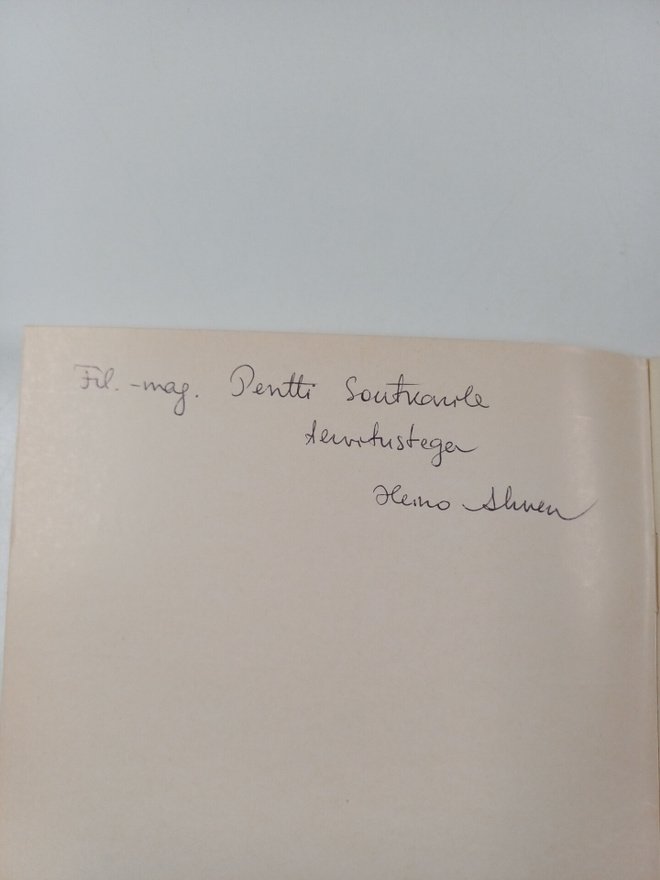 Fil.-mag. Pentti Soutkarile
tervitustega
Heino Ahven